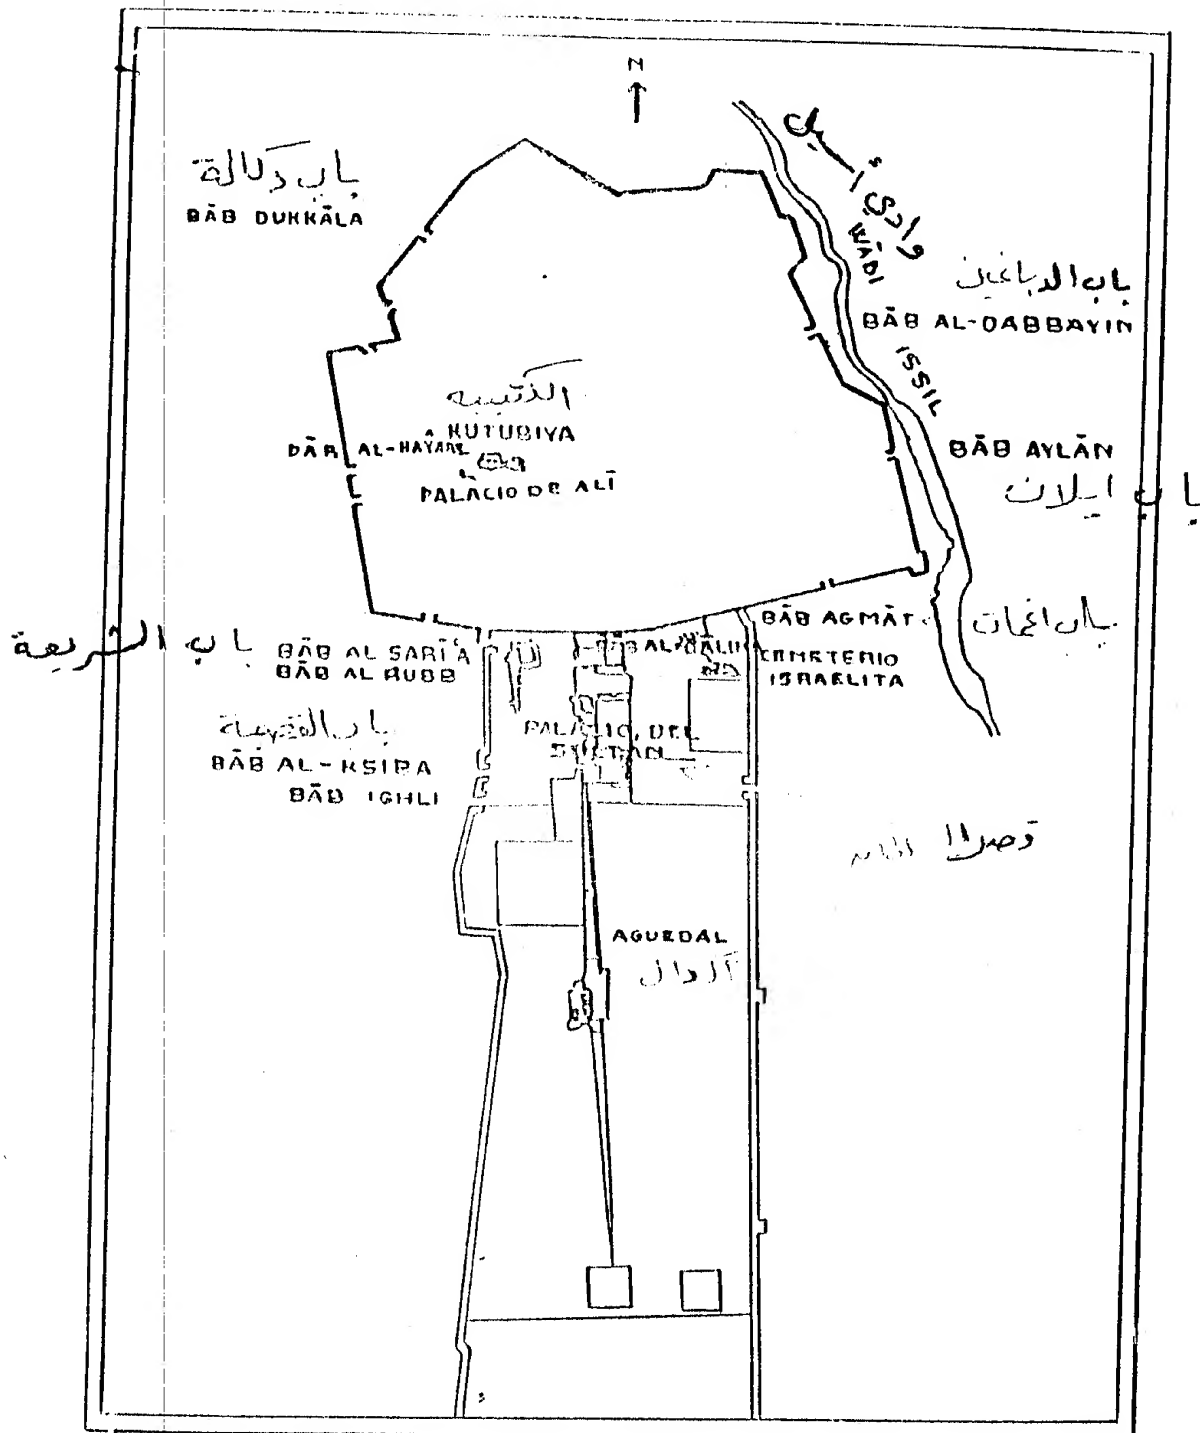 N
باب دكالة
BĀB DUKKĀLA
وادي أسيل
WĀDI
ISSIL
باب الدباغين
BĀB AL-DABBAYIN
الكتبية
KUTUBIYA
DĀR AL-HAŶAR
PALACIO DE ALĪ
BĀB AYLĀN
باب ايلان
BĀB AGMĀT
باب اغمات
باب الشريعة
BĀB AL SARĪ'A
BĀB AL RUBB
CEMETERIO
ISRAELITA
باب القصيبة
BĀB AL-KSIBA
BĀB IGHLI
PALACIO DEL
SULTAN
AGUEDAL
آكدال